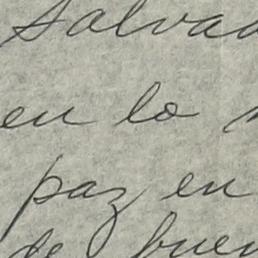 Salvad
en lo
paz en
de buen